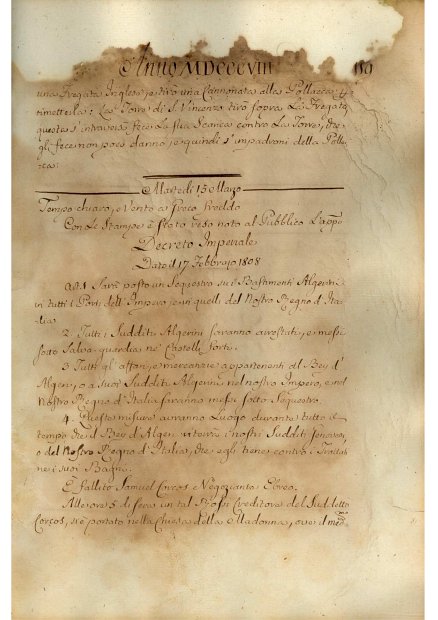 Anno MDCCCVIII 139
una Fregata Inglese tirò una Cannonata alla Pollacca
timettesla: La Torre di S. Vincenzo tirò sopra La Fregata,
questa s'intraversò, fece La sua Scarica contro La Torre, che
gli fece non poco danno, e quindi s'impadronì della Pollac-
ca:
Martedì 15 Marzo
Tempo chiaro, e Vento a fresco freddo
Con Le Stampe è stato reso noto al Pubblico L'app.
Decreto Imperiale
Dato il 17 Febbrajo 1808
Art. 1 Sarà posto un Sequestro sui Bastimenti Algerini
in tutti i Porti dell'Impero, e in quelli del Nostro Regno d'Ita-
lia.
2 Tutti i Sudditi Algerini saranno arrestati, e messi
sotto Salva-guardia ne' Castelli, forti.
3 Tutti gli affari, e mercanzie appartenenti al Bey d'
Algeri, o a suoi Sudditi Algerini nel nostro Impero, e nel
Nostro Regno d'Italia saranno messi sotto Sequestro.
4 Queste misure avranno Luogo durante tutto il
tempo che il Bey d'Algeri riterrà i nostri Sudditi
o del Nostro Regno d'Italia, che egli tiene contro i Trattati
nei suoi Bagni.
È fallito Samuel Corcos e Negoziante Ebreo.
Alle ore 5 di sera un tal Creditore del Suddetto
Corcos, si è portato nella Chiesa della Madonna, ove il